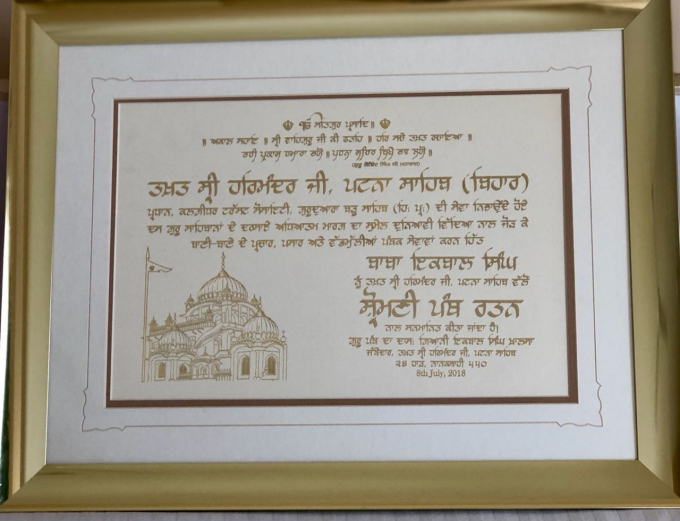 ੴ ਸਤਿਗੁਰ ਪ੍ਰਸਾਦਿ॥
॥ ਅਕਾਲ ਸਹਾਇ ॥ ਸ੍ਰੀ ਵਾਹਿਗੁਰੂ ਜੀ ਕੀ ਫਤਹਿ ॥ ਹਰਿ ਸਚੇ ਤਖਤ ਰਚਾਇਆ ॥
ਤਹੀ ਪ੍ਰਕਾਸ਼ ਹਮਾਰਾ ਭਯੋ॥ ਪਟਨਾ ਸ਼ਹਿਰ ਬਿਖੈ ਭਵ ਲਯੋ॥
ਤਖ਼ਤ ਸ੍ਰੀ ਹਰਿਮੰਦਰ ਜੀ, ਪਟਨਾ ਸਾਹਿਬ (ਬਿਹਾਰ)
ਪ੍ਰਧਾਨ, ਕਲਗੀਧਰ ਟਰੱਸਟ ਸੋਸਾਇਟੀ, ਗੁਰਦੁਆਰਾ ਬੜੂ ਸਾਹਿਬ (ਹਿ: ਪ੍ਰ:) ਦੀ ਸੇਵਾ ਨਿਭਾਉਂਦੇ ਹੋਏ
ਦਸ ਗੁਰੂ ਸਾਹਿਬਾਨਾਂ ਦੇ ਦਰਸਾਏ ਅਧਿਆਤਮ ਮਾਰਗ ਦਾ ਸੁਮੇਲ ਦੁਨਿਆਵੀ ਵਿੱਦਿਆ ਨਾਲ ਜੋੜ ਕੇ
ਬਾਣੀ-ਬਾਣੇ ਦੇ ਪ੍ਰਚਾਰ, ਪਸਾਰ ਅਤੇ ਵੱਡਮੁੱਲੀਆਂ ਪੰਥਕ ਸੇਵਾਵਾਂ ਕਰਨ ਹਿੱਤ
ਬਾਬਾ ਇਕਬਾਲ ਸਿੰਘ
ਨੂੰ ਤਖ਼ਤ ਸ੍ਰੀ ਹਰਿਮੰਦਰ ਜੀ, ਪਟਨਾ ਸਾਹਿਬ ਵੱਲੋਂ
ਸ਼੍ਰੋਮਣੀ ਪੰਥ ਰਤਨ
ਨਾਲ ਸਨਮਾਨਿਤ ਕੀਤਾ ਜਾਂਦਾ ਹੈ।
ਗੁਰੂ ਪੰਥ ਦਾ ਦਾਸ: ਗਿਆਨੀ ਇਕਬਾਲ ਸਿੰਘ ਖ਼ਾਲਸਾ
ਜਥੇਦਾਰ, ਤਖ਼ਤ ਸ੍ਰੀ ਹਰਿਮੰਦਰ ਜੀ, ਪਟਨਾ ਸਾਹਿਬ
੨੪ ਹਾੜ, ਨਾਨਕਸ਼ਾਹੀ ੫੫੦
8th July, 2018